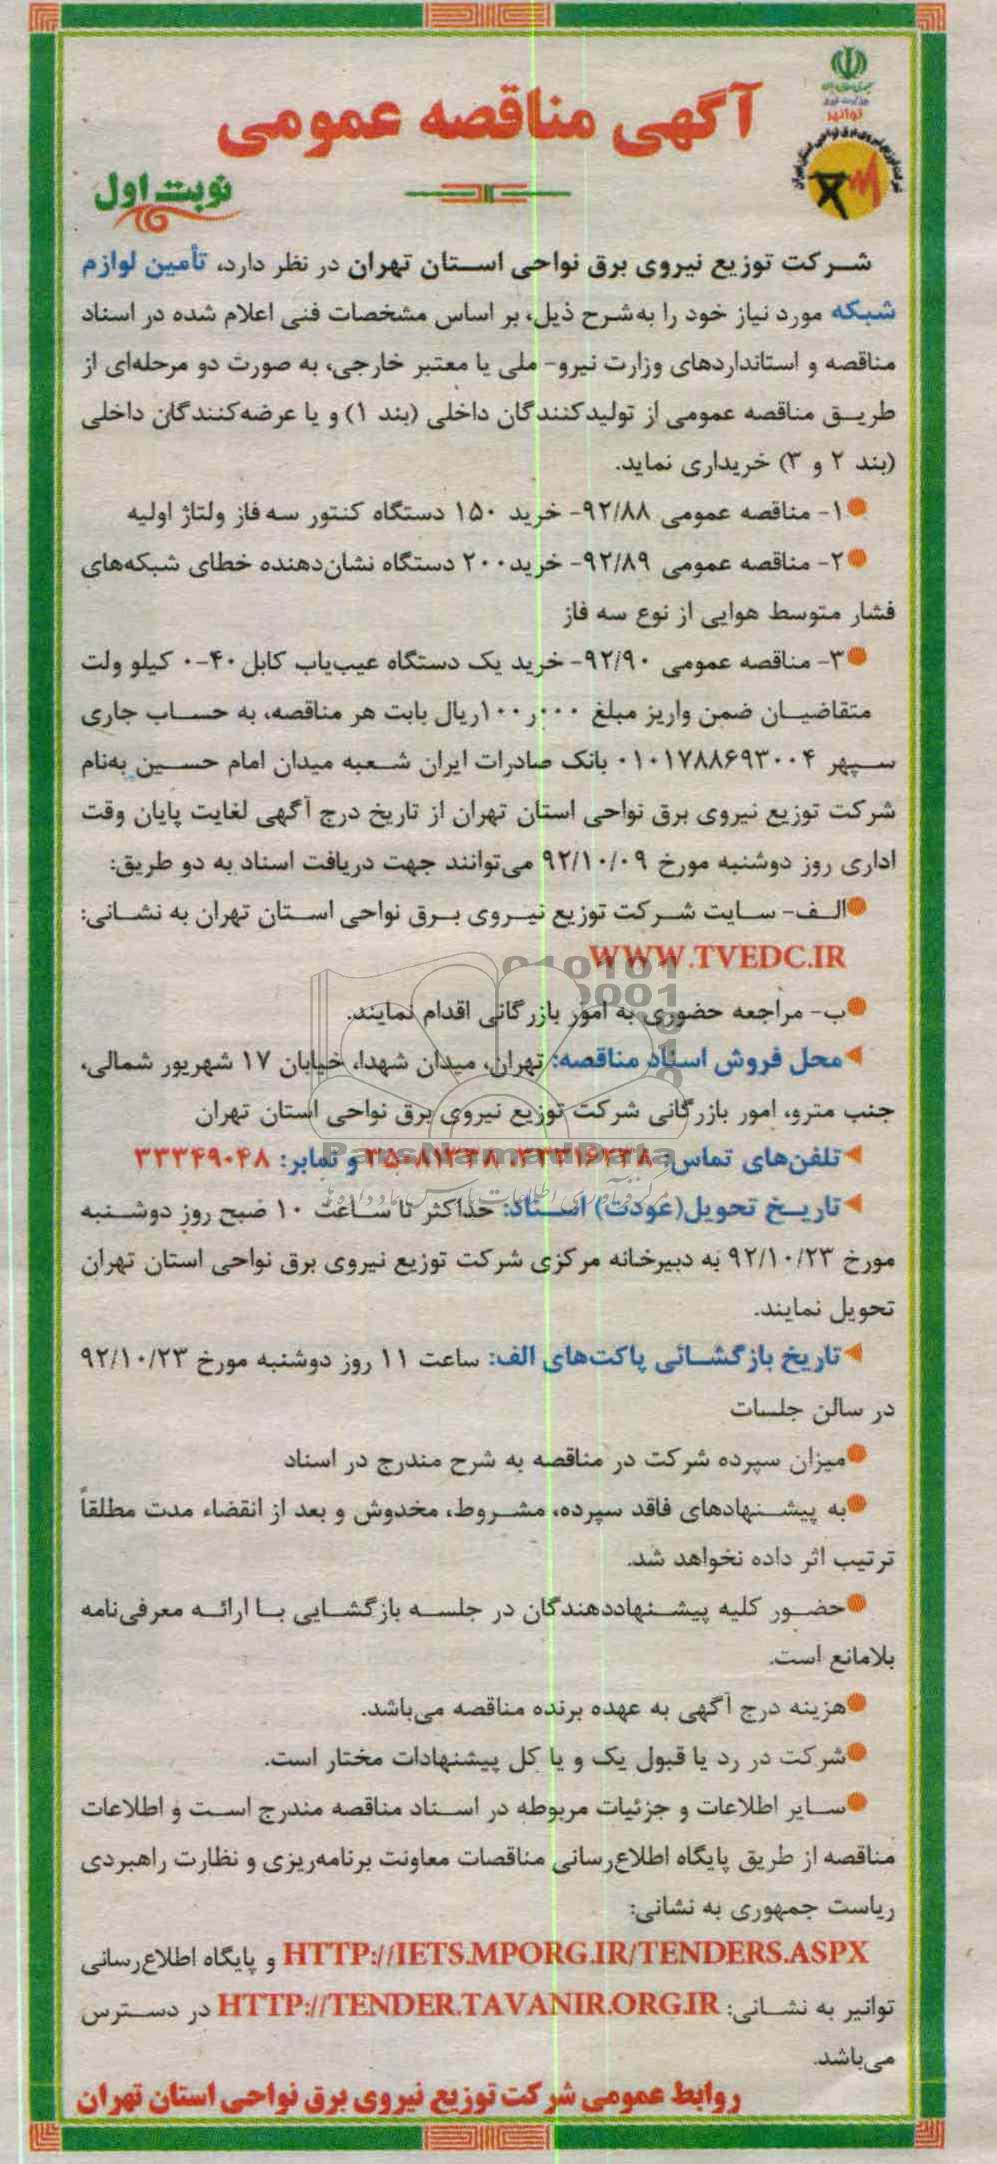 آگهی مناقصه عمومی
نوبت اول
توانیر
شرکت توزیع نیروی برق نواحی استان تهران
شرکت توزیع نیروی برق نواحی استان تهران در نظر دارد، تأمین لوازم
شبکه مورد نیاز خود را به‌شرح ذیل، بر اساس مشخصات فنی اعلام شده در اسناد
مناقصه و استانداردهای وزارت نیرو- ملی یا معتبر خارجی، به صورت دو مرحله‌ای از
طریق مناقصه عمومی از تولیدکنندگان داخلی (بند ۱) و یا عرضه‌کنندگان داخلی
(بند ۲ و ۳) خریداری نماید.
۱- مناقصه عمومی ۹۲/۸۸- خرید ۱۵۰ دستگاه کنتور سه فاز ولتاژ اولیه
۲- مناقصه عمومی ۹۲/۸۹- خرید۲۰۰ دستگاه نشان‌دهنده خطای شبکه‌های
فشار متوسط هوایی از نوع سه فاز
۳- مناقصه عمومی ۹۲/۹۰- خرید یک دستگاه عیب‌یاب کابل ۴۰-۰ کیلو ولت
متقاضیان ضمن واریز مبلغ ۱۰۰ر۰۰۰ریال بابت هر مناقصه، به حساب جاری
سپهر ۰۱۰۱۷۸۸۶۹۳۰۰۴ بانک صادرات ایران شعبه میدان امام حسین به‌نام
شرکت توزیع نیروی برق نواحی استان تهران از تاریخ درج آگهی لغایت پایان وقت
اداری روز دوشنبه مورخ ۹۲/۱۰/۰۹ می‌توانند جهت دریافت اسناد به دو طریق:
الف- سایت شرکت توزیع نیروی برق نواحی استان تهران به نشانی:
WWW.TVEDC.IR
ب- مراجعه حضوری به امور بازرگانی اقدام نمایند.
محل فروش اسناد مناقصه: تهران، میدان شهدا، خیابان ۱۷ شهریور شمالی،
جنب مترو، امور بازرگانی شرکت توزیع نیروی برق نواحی استان تهران
ParsNamadData
تلفن‌های تماس: و نمابر: ۳۳۳۴۹۰۴۸
تاریخ تحویل(عودت) اسناد: حداکثر تا ساعت ۱۰ صبح روز دوشنبه
مورخ ۹۲/۱۰/۲۳ به دبیرخانه مرکزی شرکت توزیع نیروی برق نواحی استان تهران
تحویل نمایند.
تاریخ بازگشائی پاکت‌های الف: ساعت ۱۱ روز دوشنبه مورخ ۹۲/۱۰/۲۳
در سالن جلسات
میزان سپرده شرکت در مناقصه به شرح مندرج در اسناد
به پیشنهادهای فاقد سپرده، مشروط، مخدوش و بعد از انقضاء مدت مطلقاً
ترتیب اثر داده نخواهد شد.
حضور کلیه پیشنهاددهندگان در جلسه بازگشایی با ارائه معرفی‌نامه
بلامانع است.
هزینه درج آگهی به عهده برنده مناقصه می‌باشد.
شرکت در رد یا قبول یک و یا کل پیشنهادات مختار است.
سایر اطلاعات و جزئیات مربوطه در اسناد مناقصه مندرج است و اطلاعات
مناقصه از طریق پایگاه اطلاع‌رسانی مناقصات معاونت برنامه‌ریزی و نظارت راهبردی
ریاست جمهوری به نشانی:
HTTP://IETS.MPORG.IR/TENDERS.ASPX و پایگاه اطلاع‌رسانی
توانیر به نشانی: HTTP://TENDER.TAVANIR.ORG.IR در دسترس
می‌باشد.
روابط عمومی شرکت توزیع نیروی برق نواحی استان تهران